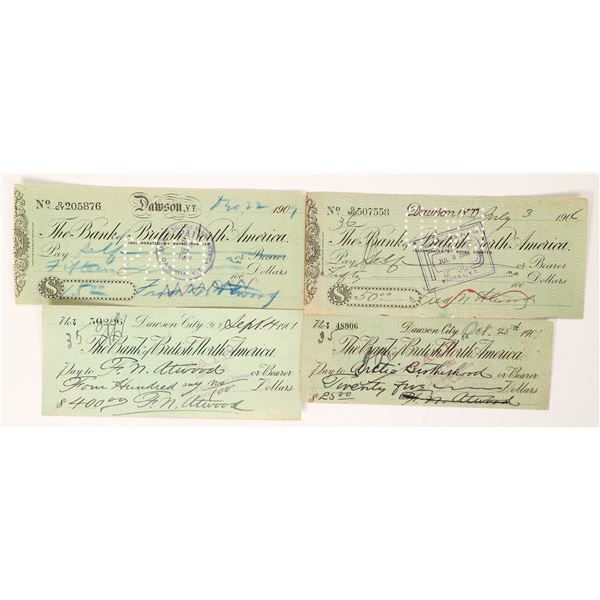 No 205876 Dawson, Y.T. Dec 22 1909
The Bank of British North America.
INCORPORATED BY ROYAL CHARTER
Pay Self or Bearer
Fifteen Dollars
$
No 507558 Dawson, Y.T. July 3 1906
36
The Bank of British North America.
INCORPORATED BY ROYAL CHARTER
Pay Self or Bearer
Fifty 00/100 Dollars
$ 50.00
35
Dawson City Sept 4 1901
The Bank of British North America
Pay to F. N. Atwood or Bearer
Four Hundred no/100 Dollars
$400.00 F. N. Atwood
No 48906 Dawson City, Oct. 25th 1901
35
The Bank of British North America
Pay to Arctic Brotherhood or Bearer
Twenty Five Dollars
$25.00 F. N. Atwood